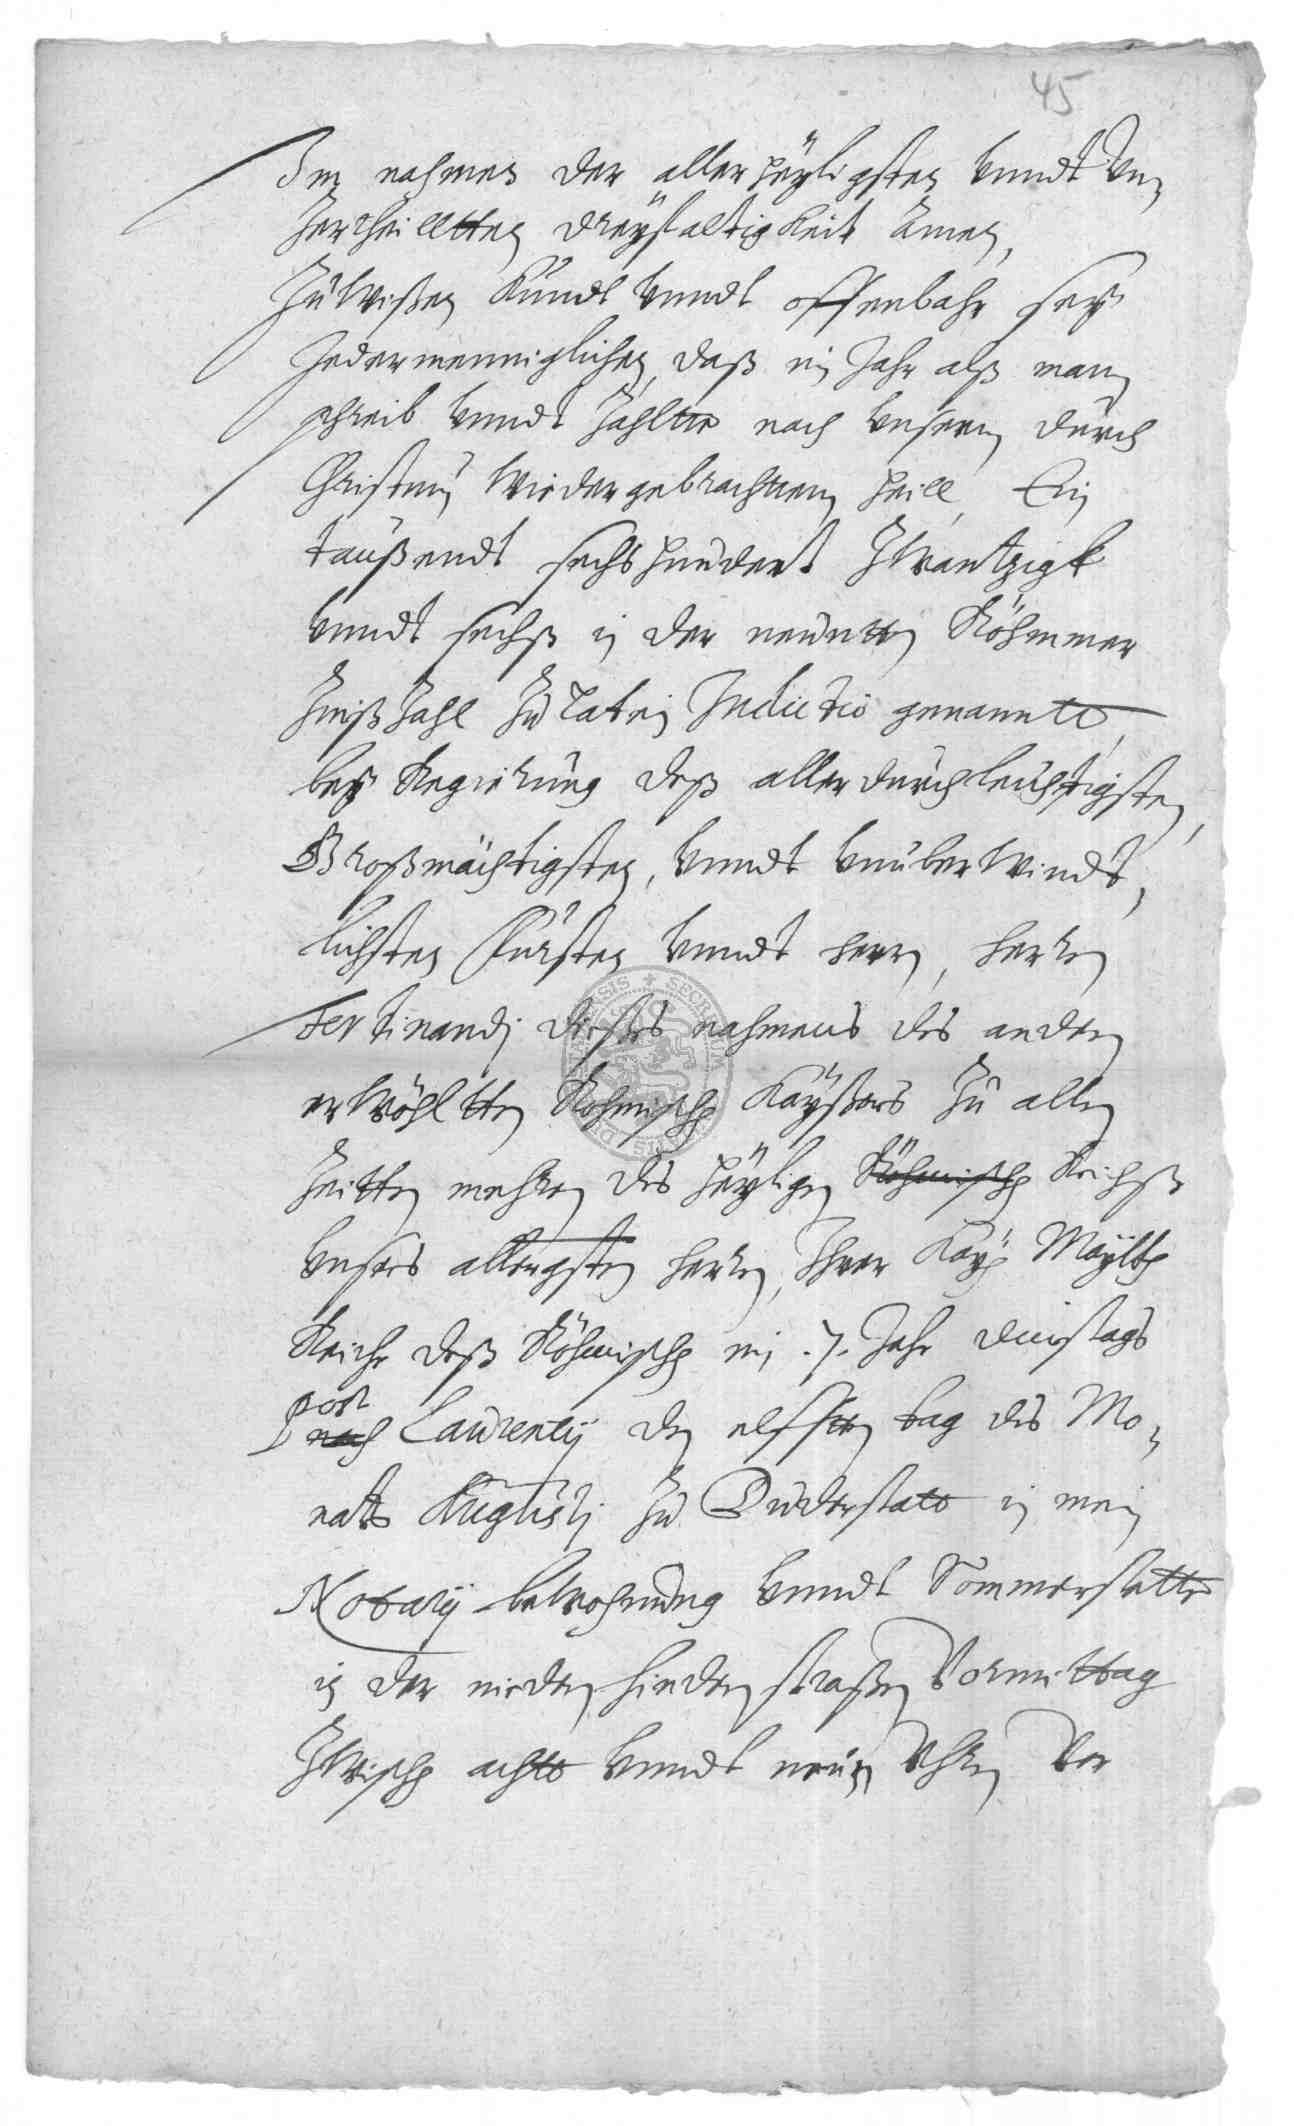 45
Im nahmen der allerheyligsten vnndt Vn-
zertheilltten dreyfaltigkeit Amen,
Zu wißen kundt vnndt offenbahr sey
Jedermenniglichen, daß im Jahr alß mann
schreib vnndt Zahltte nach vnserm durch
Christum wiedergebrachtem heill, Ein
taußendt sechshundert Zwantzigk
vnndt sechß in der neundten Röhmmer
Zinßzahl zu latein Indictio genandt,
bey Regierung deß allerdurchleuchtigsten,
Großmächtigsten, vnndt vnüberwindt-
lichsten Fürsten vnndt herrn, herrn
Ferdinandj dieses nahmens des andern
erwöhltten Rohmischen Kayßers Zu allen
Zeitten mehrern des heyligen Röhmischen Reichß
vnsers allergsten herrn, Ihrer Kay: Maytt
Reiche deß Röhmischen im .7. Jahr dinstags
post
nach Laurentij den elfften tag des Mo-
nats Augustj Zu Duderstatt in mein
Notarij bewohnung vnndt Sommerstatte
in der niedern hindern straßen Vormittag
Zwischen acht vnndt neun Vhren Vor